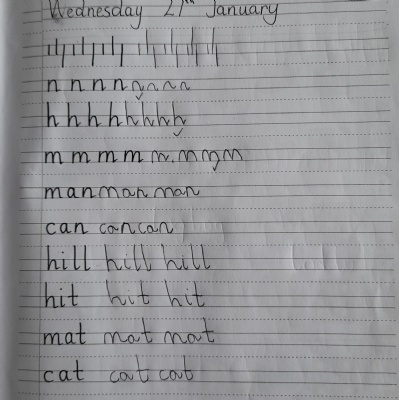 Wednesday 27th January
n n n n n n n n
h h h h h h h h
m m m m m m m m
man man man
can can can
hill hill hill
hit hit hit
mat mat mat
cat cat cat